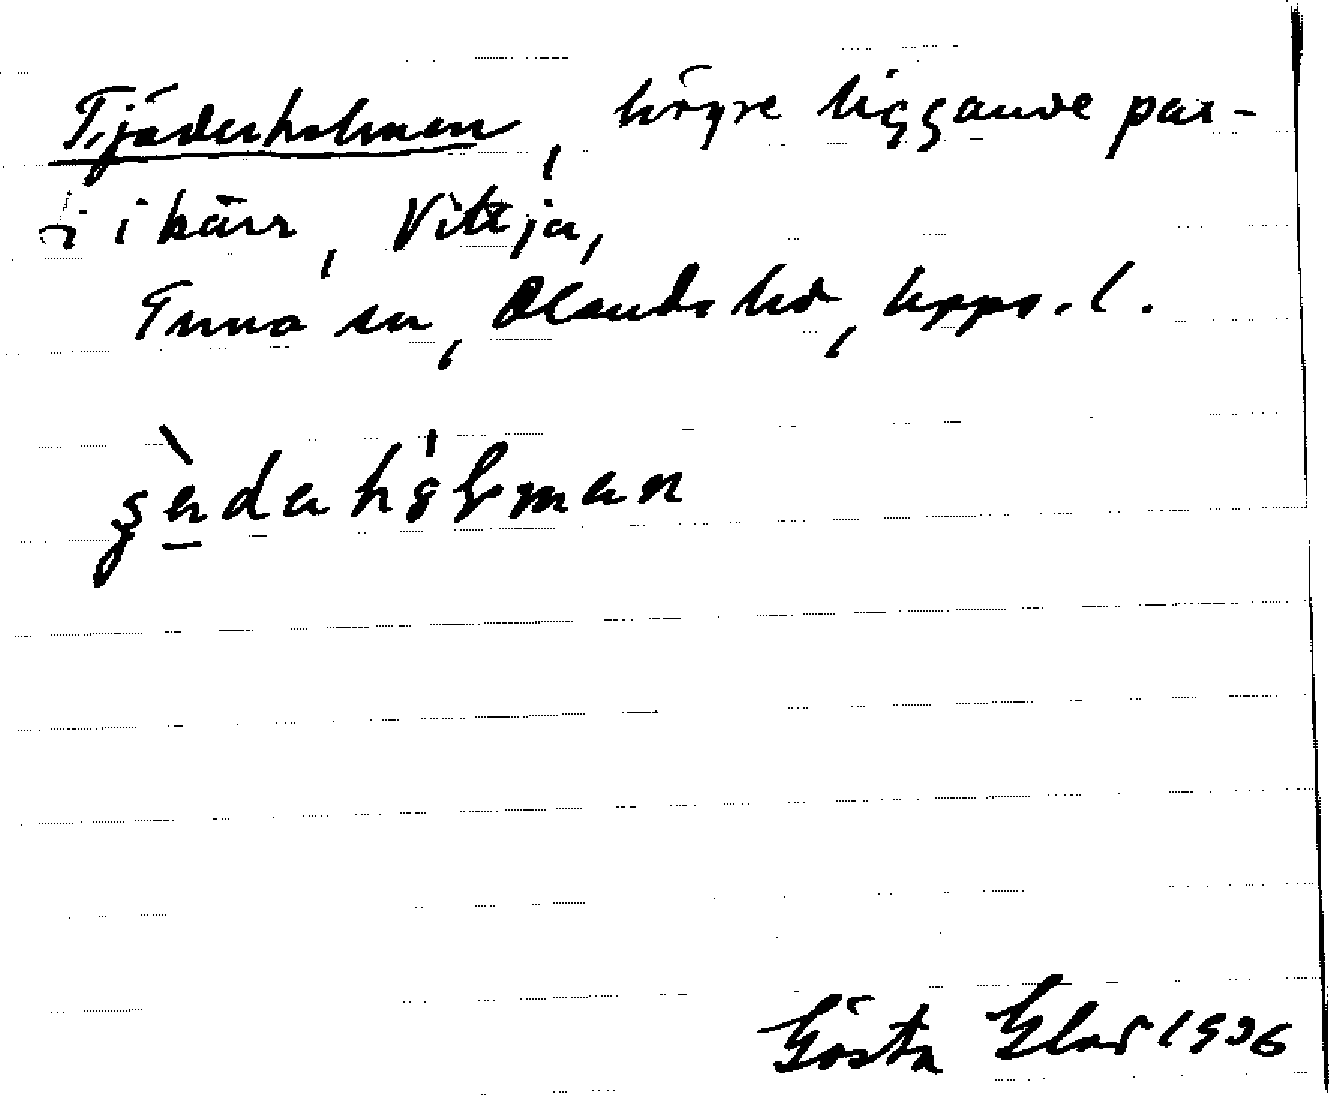 Tjäderholmen, högre liggande par-
ti i kärr, Vittja,
Tuna sn, Olands hd, Upps. l.
Gösta Elas 1936